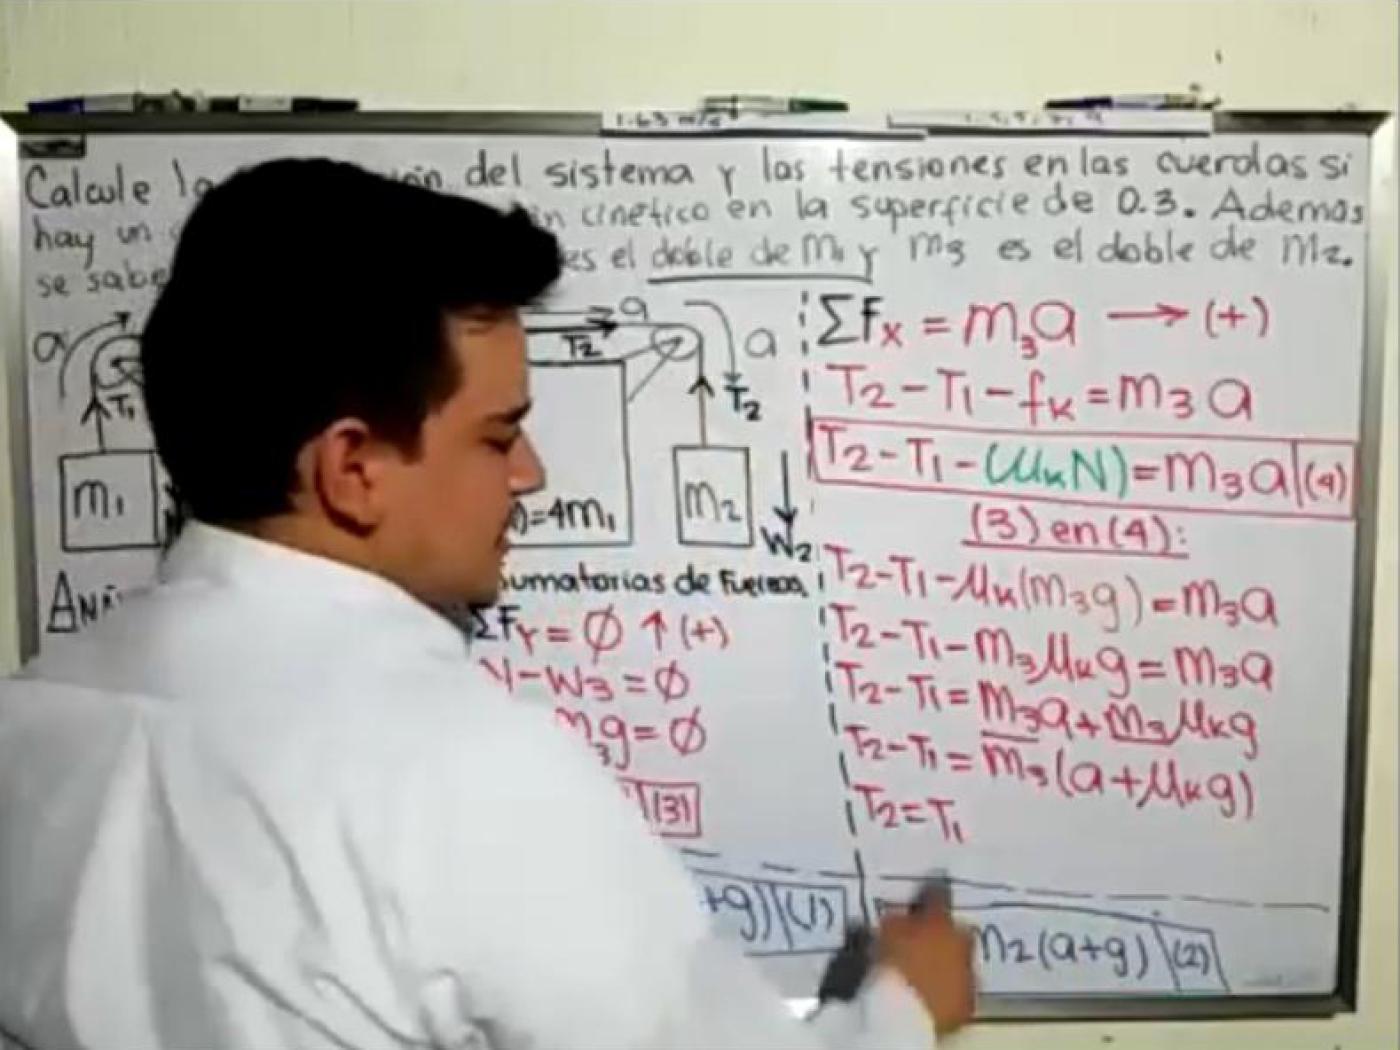 1.63 m/s²
Calcule la del sistema y las tensiones en las cuerdas si
hay un cinético en la superficie de 0.3. Ademas
se sabe es el doble de m1 y m3 es el doble de m2.
a
T1
m1
T2
a
a
T2
m2
W2
)=4m1
Sumatorias de Fuerzas
ΣFY = Ø ↑ (+)
N-W3 = Ø
m3g = Ø
(3)
+g) (1)
ΣFx = m3a → (+)
T2-T1-fk = m3a
T2-T1-(μkN) = m3a (4)
(3) en (4):
T2-T1-μk(m3g) = m3a
T2-T1-m3μkg = m3a
T2-T1 = m3a+m3μkg
T2-T1 = m3(a+μkg)
T2=T1
m2(a+g) (2)